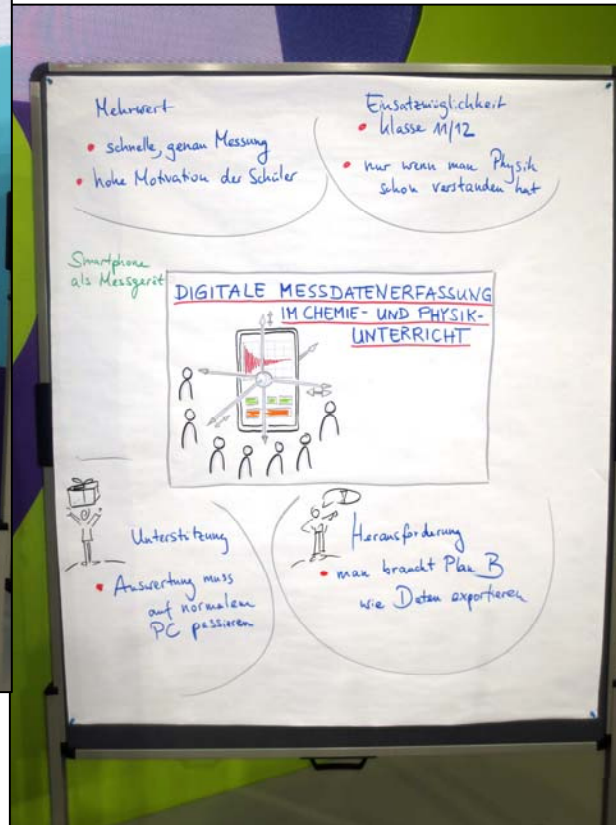 Mehrwert
• schnelle, genau Messung
• hohe Motivation der Schüler
Einsatzmöglichkeit
• Klasse 11/12
• nur wenn man Physik
schon verstanden hat
Smartphone
als Messgerät
DIGITALE MESSDATENERFASSUNG
IM CHEMIE- UND PHYSIK-
UNTERRICHT
Unterstützung
• Auswertung muss
auf normalem
PC passieren
Herausforderung
• man braucht Plan B
wie Daten exportieren